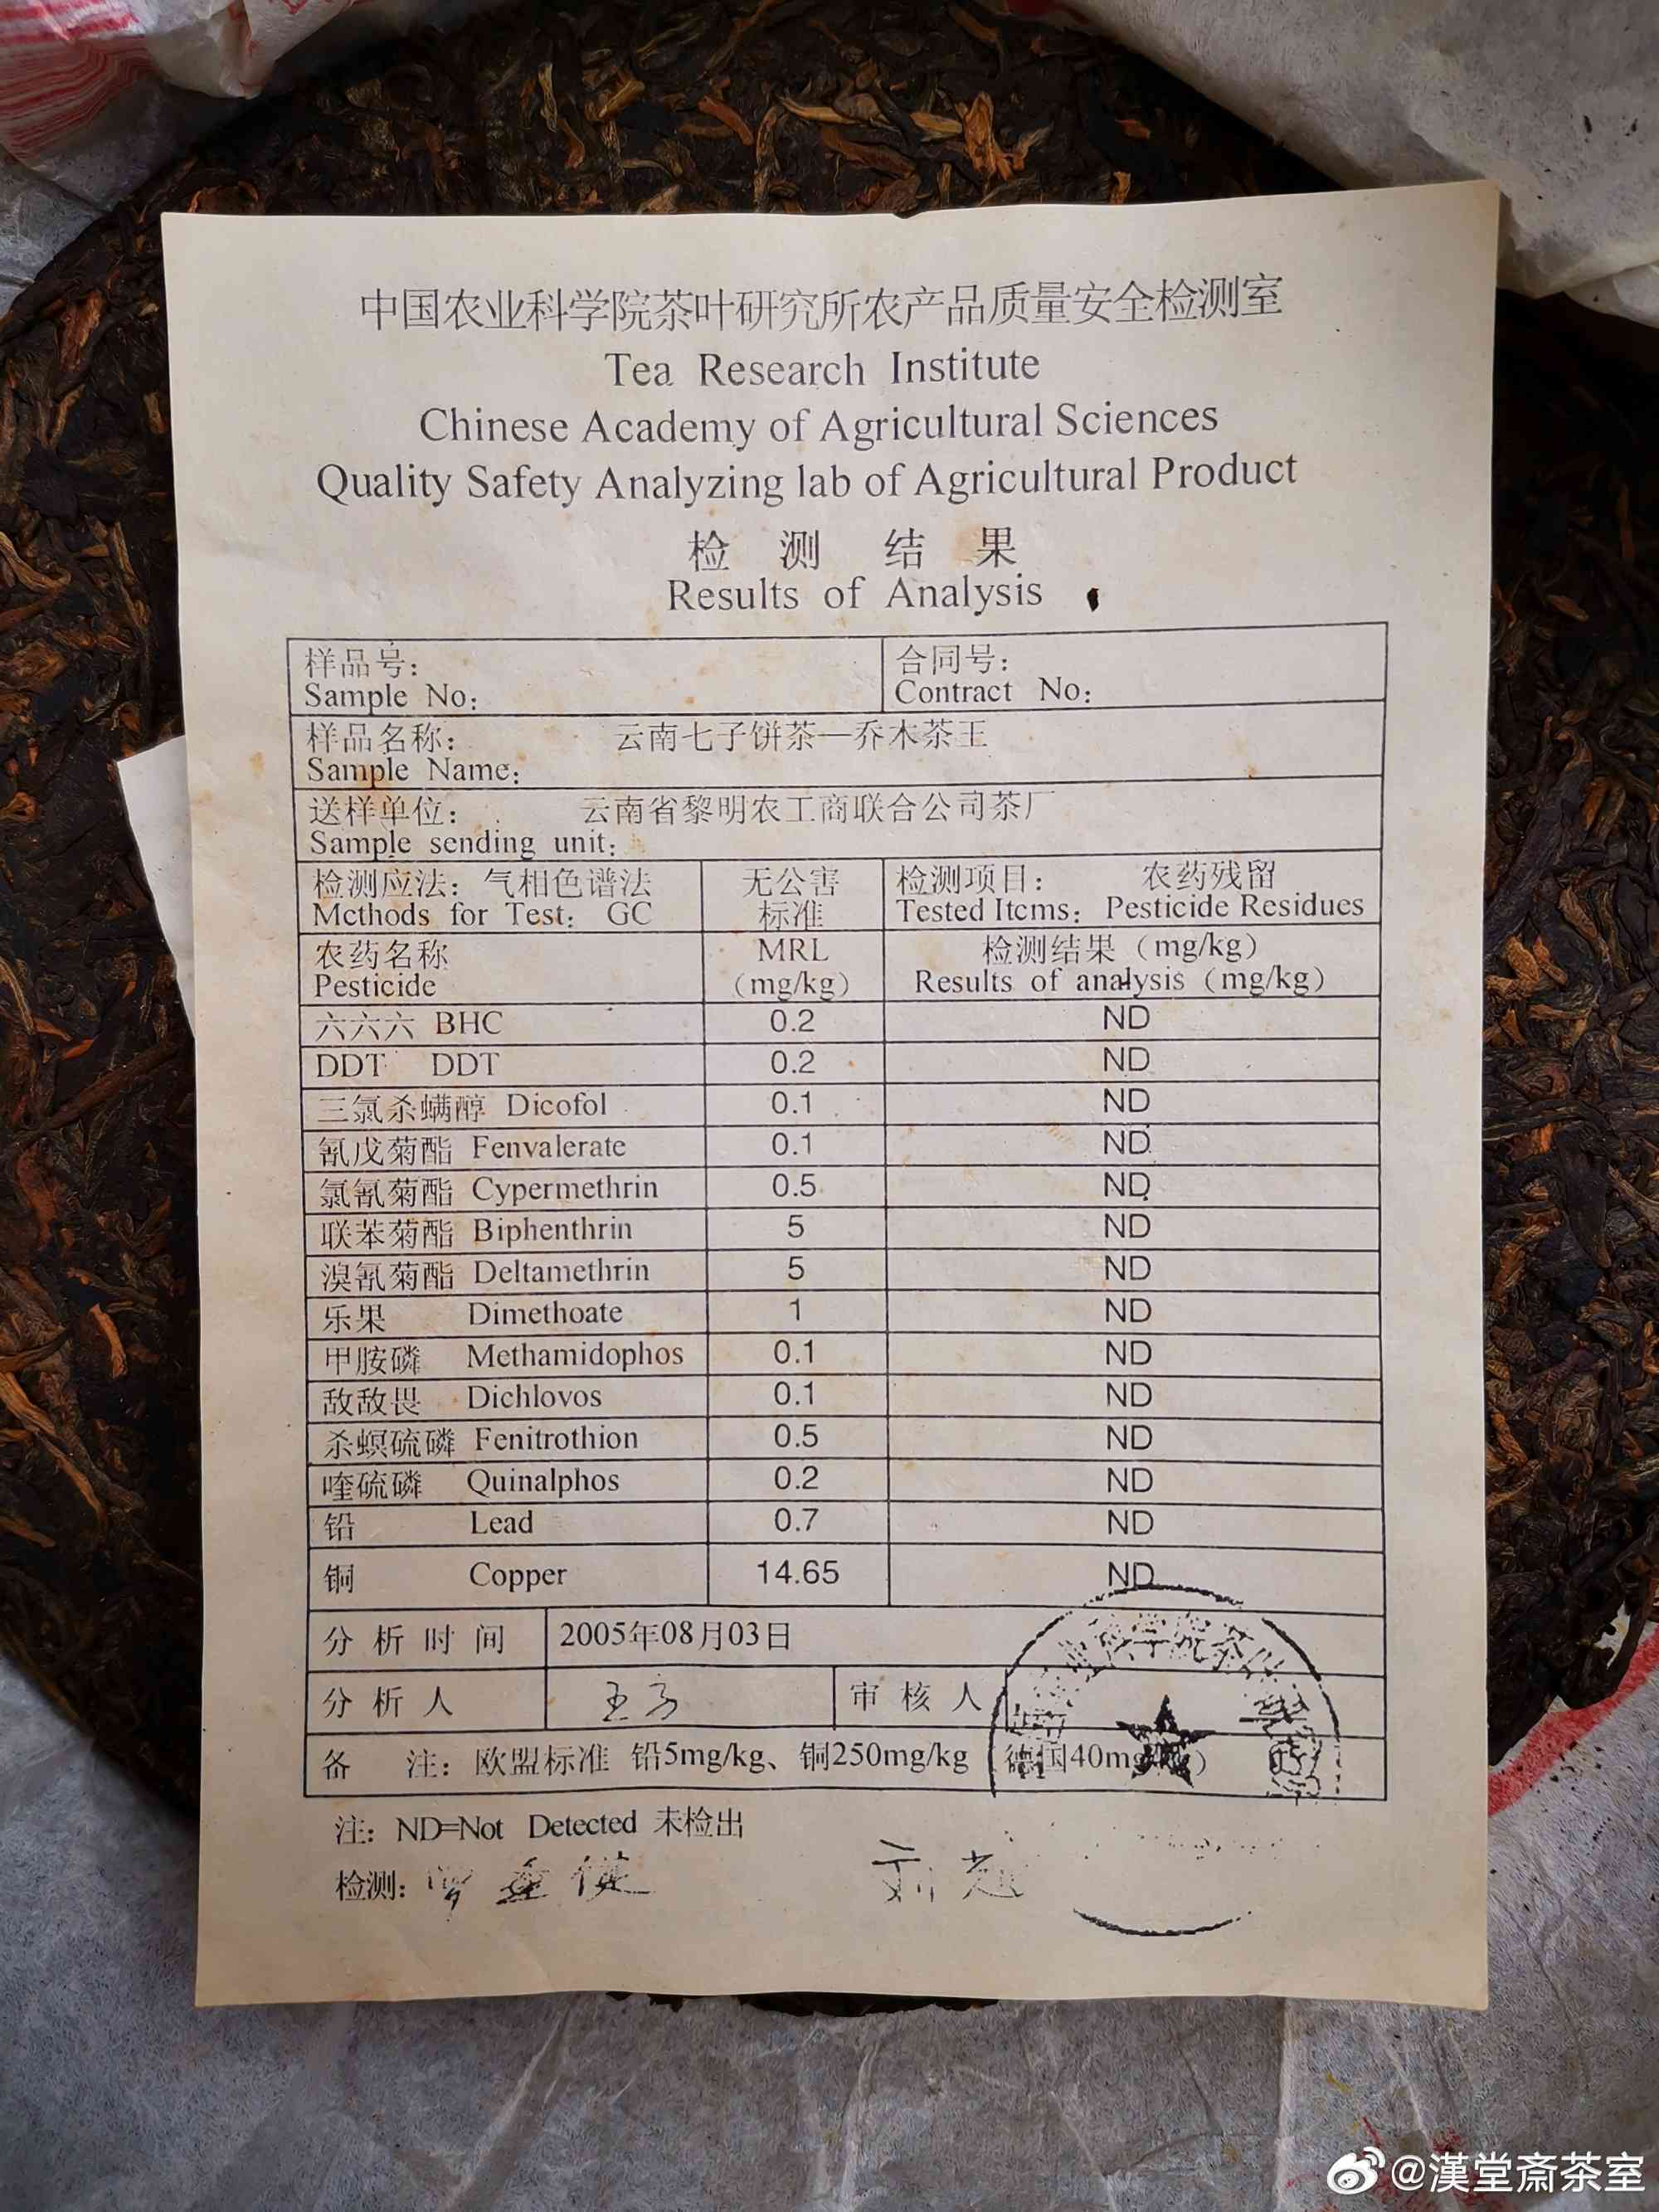 中国农业科学院茶叶研究所农产品质量安全检测室
Tea Research Institute
Chinese Academy of Agricultural Sciences
Quality Safety Analyzing lab of Agricultural Product
检 测 结 果
Results of Analysis
样品号: 合同号:
Sample No: Contract No:
样品名称: 云南七子饼茶—乔木茶王
Sample Name:
送样单位: 云南省黎明农工商联合公司茶厂
Sample sending unit:
检测应法: 气相色谱法 无公害 检测项目: 农药残留
Mcthods for Test: GC 标准 Tested Itcms: Pesticide Residues
农药名称 MRL 检测结果 (mg/kg)
Pesticide (mg/kg) Results of analysis (mg/kg)
六六六 BHC 0.2 ND
DDT DDT 0.2 ND
三氯杀螨醇 Dicofol 0.1 ND
氰戊菊酯 Fenvalerate 0.1 ND
氯氰菊酯 Cypermethrin 0.5 ND
联苯菊酯 Biphenthrin 5 ND
溴氰菊酯 Deltamethrin 5 ND
乐果 Dimethoate 1 ND
甲胺磷 Methamidophos 0.1 ND
敌敌畏 Dichlovos 0.1 ND
杀螟硫磷 Fenitrothion 0.5 ND
喹硫磷 Quinalphos 0.2 ND
铅 Lead 0.7 ND
铜 Copper 14.65 ND
分 析 时 间 2005年08月03日
分 析 人 审 核 人
备 注: 欧盟标准 铅5mg/kg、铜250mg/kg (德国40mg/kg)
注: ND=Not Detected 未检出
检测:
@漢堂斎茶室